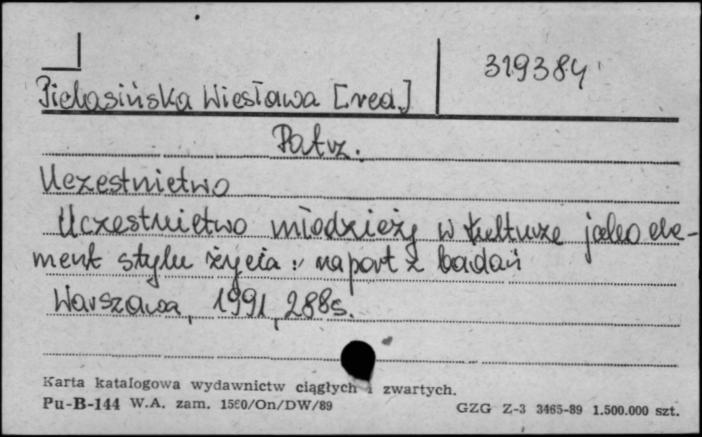 319384
Piekasińska Wiesława [red.]
Patrz.
Uczestnictwo
Uczestnictwo młodzieży w kulturze jako ele-
ment stylu życia : raport z badań
Warszawa, 1991, 288s.
Karta katalogowa wydawnictw ciągłych i zwartych.
Pu-B-144 W.A. zam. 1560/On/DW/89 GZG Z-3 3465-89 1.500.000 szt.